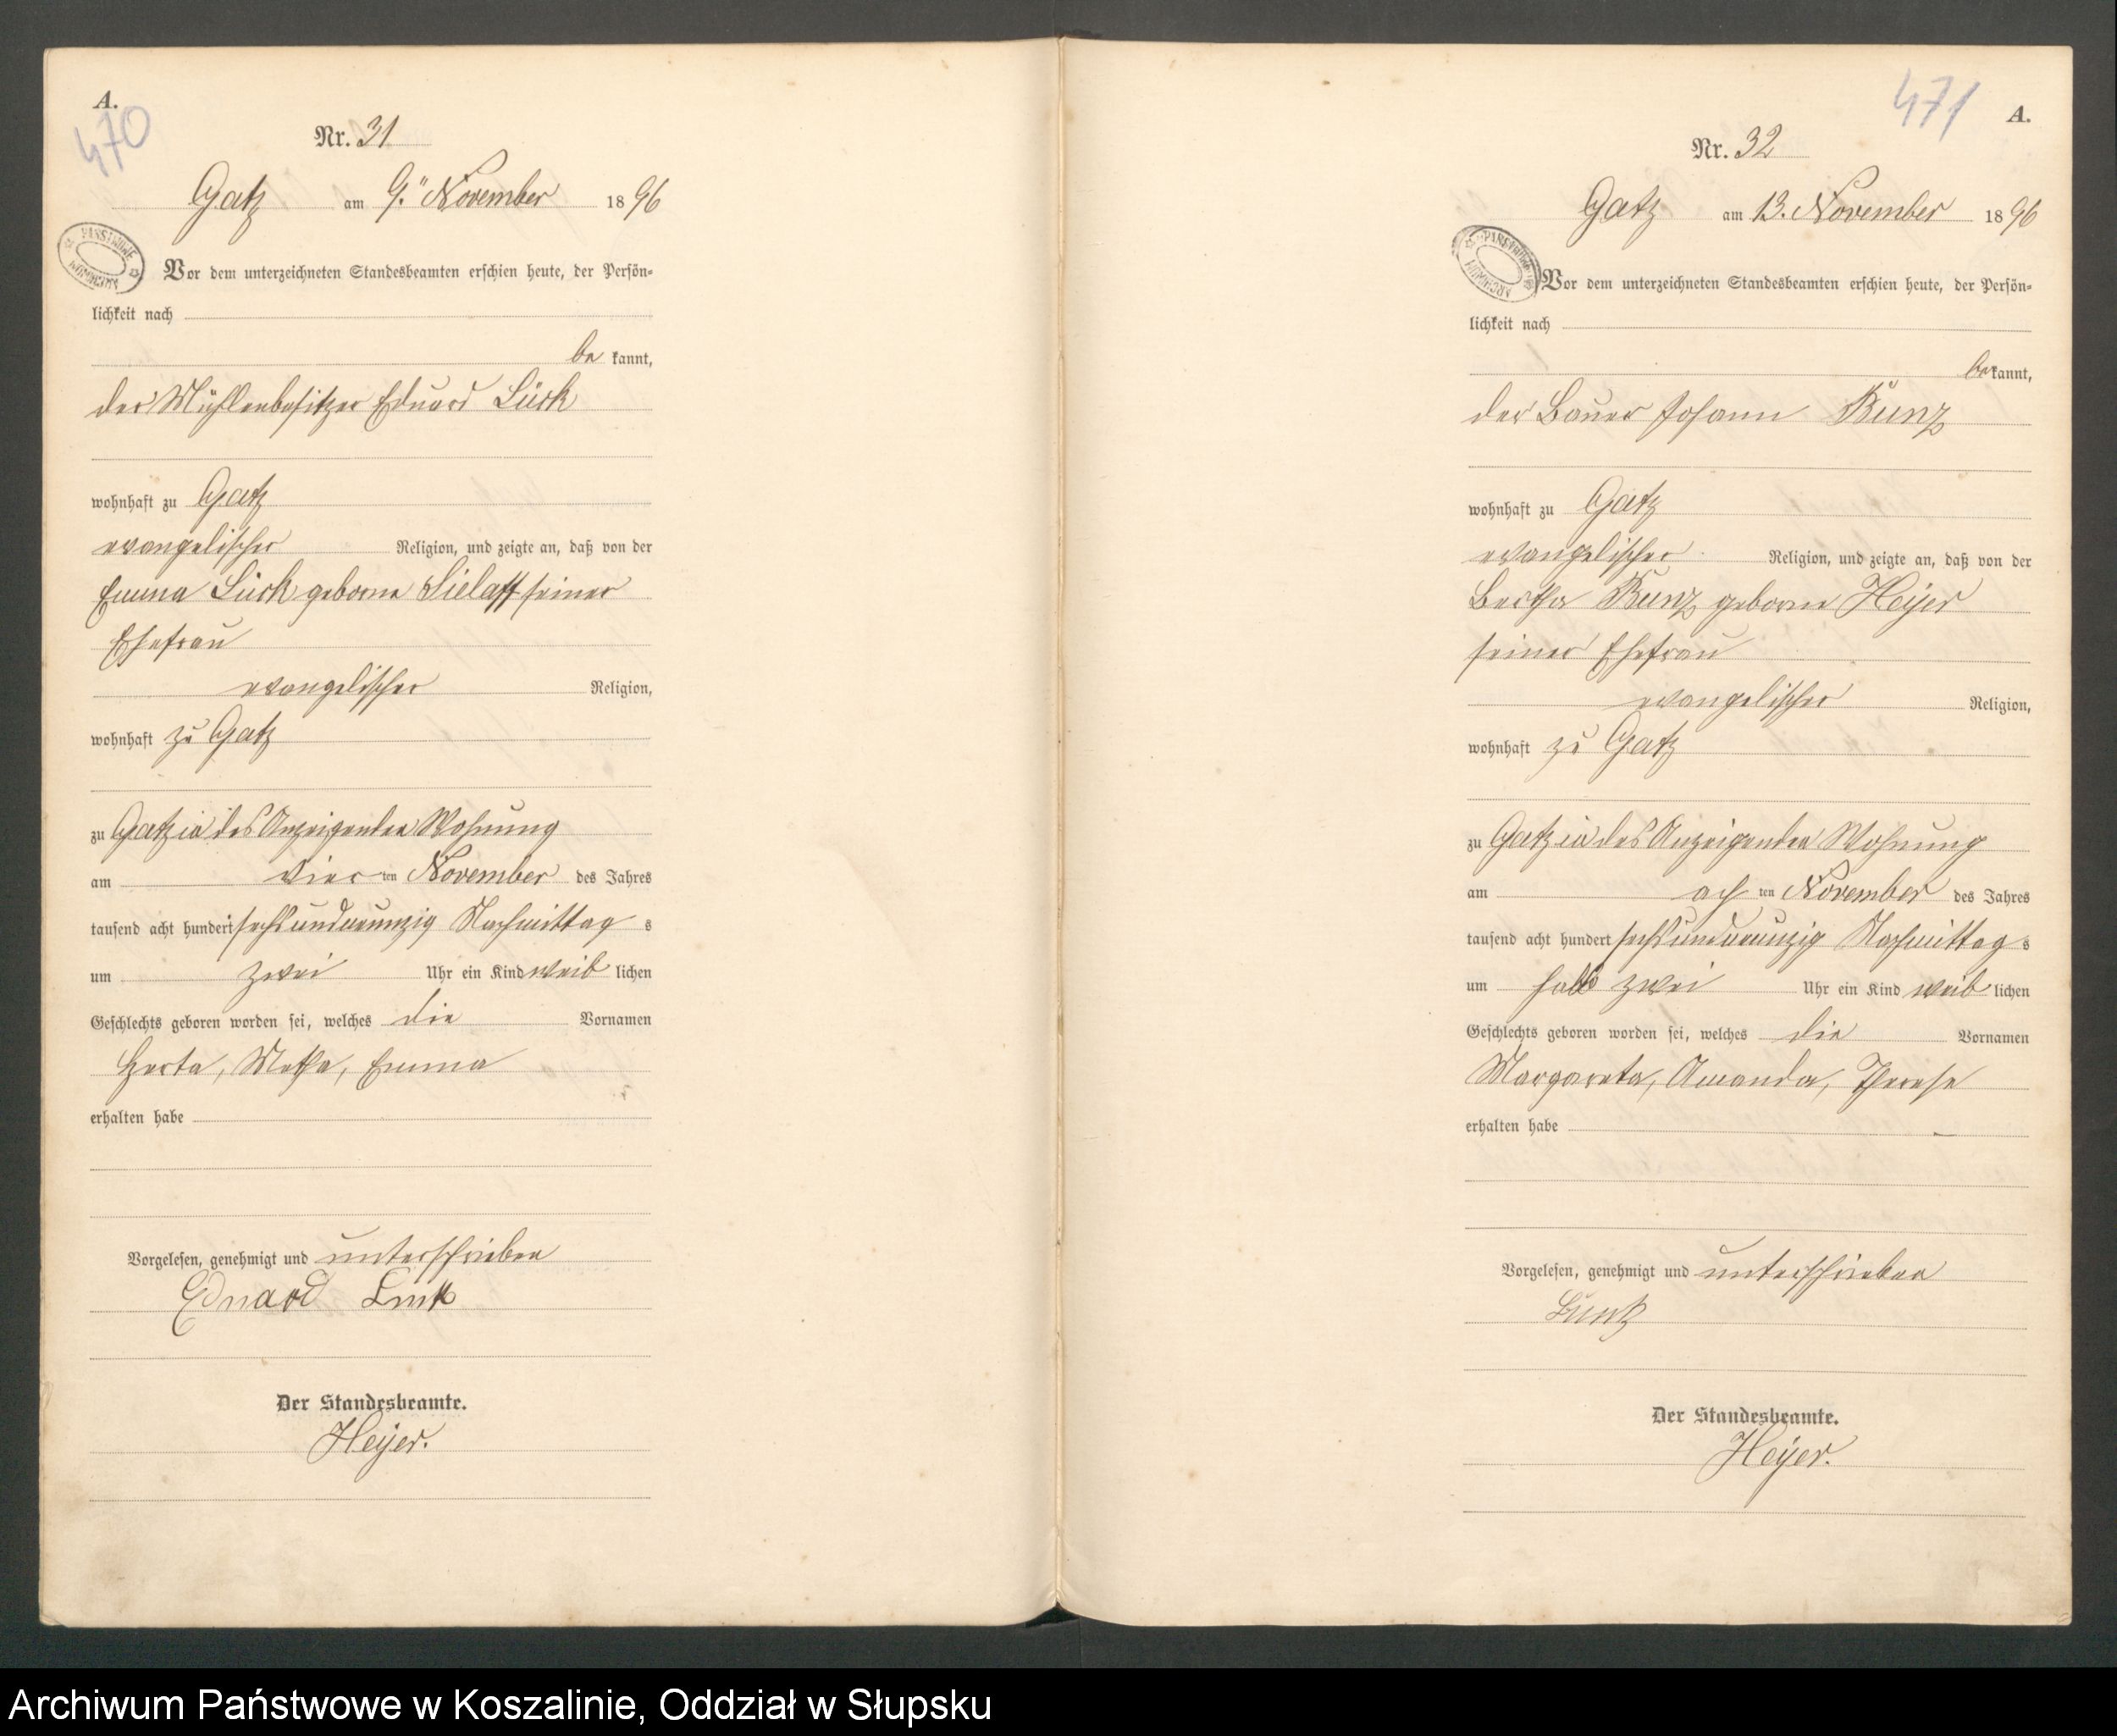 A.
470
Nr. 31
Gatz am 9. November 1896
Vor dem unterzeichneten Standesbeamten erschien heute, der Persön-
lichkeit nach
be kannt,
der Mühlenbesitzer Eduard Lück
wohnhaft zu Gatz
evangelischer Religion, und zeigte an, daß von der
Emma Lück geborne Sielaff seiner
Ehefrau
evangelischer Religion,
wohnhaft zu Gatz
zu Gatz in des Anzeigenden Wohnung
am vier ten November des Jahres
tausend acht hundert sechsundneunzig Nachmittag s
um zwei Uhr ein Kind weib lichen
Geschlechts geboren worden sei, welches die Vornamen
Herta, Metha, Emma
erhalten habe
Vorgelesen, genehmigt und unterschrieben
Eduard Lück
Der Standesbeamte.
Heyer.
471
A.
Nr. 32
Gatz am 13. November 1896
Vor dem unterzeichneten Standesbeamten erschien heute, der Persön-
lichkeit nach
be kannt,
der Bauer Johann
wohnhaft zu Gatz
evangelischer Religion, und zeigte an, daß von der
Bertha geborne Heyer
seiner Ehefrau
evangelischer Religion,
wohnhaft zu Gatz
zu Gatz in des Anzeigenden Wohnung
am ach ten November des Jahres
tausend acht hundert sechsundneunzig Nachmittag s
um halb zwei Uhr ein Kind weib lichen
Geschlechts geboren worden sei, welches die Vornamen
Margareta, Amanda, Therese
erhalten habe
Vorgelesen, genehmigt und unterschrieben
Der Standesbeamte.
Heyer.
Archiwum Państwowe w Koszalinie, Oddział w Słupsku